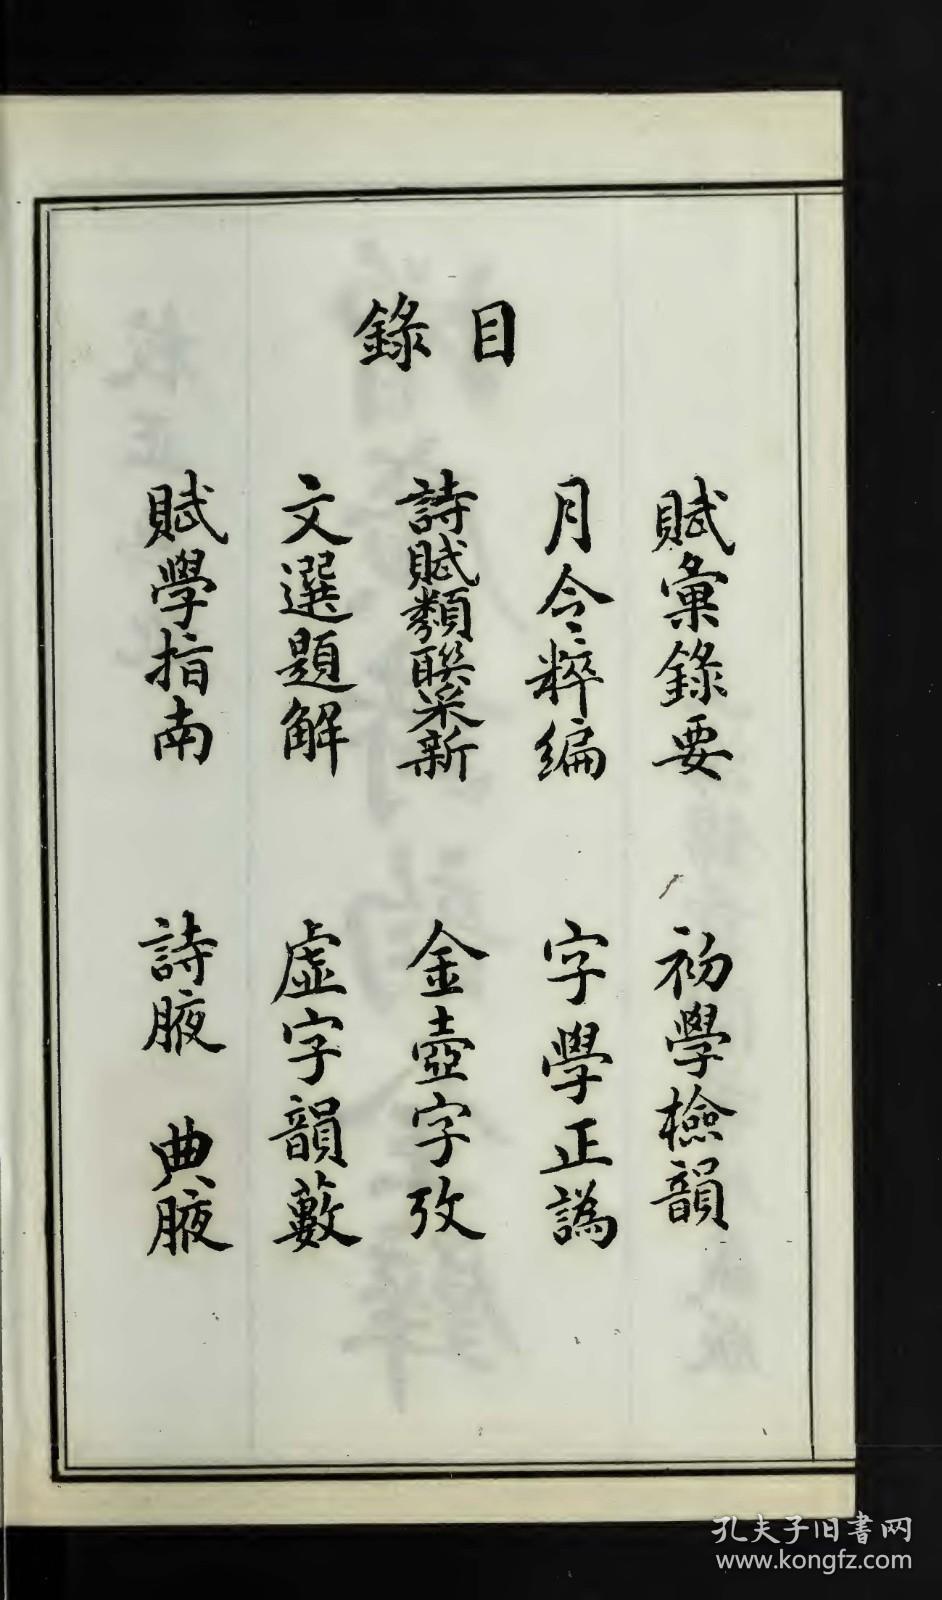 目錄
賦彙錄要 初學檢韻
月令粹編 字學正譌
詩賦類聯采新 金壺字攷
文選題解 虛字韻藪
賦學指南 詩腋 典腋
孔夫子旧書网
www.kongfz.com